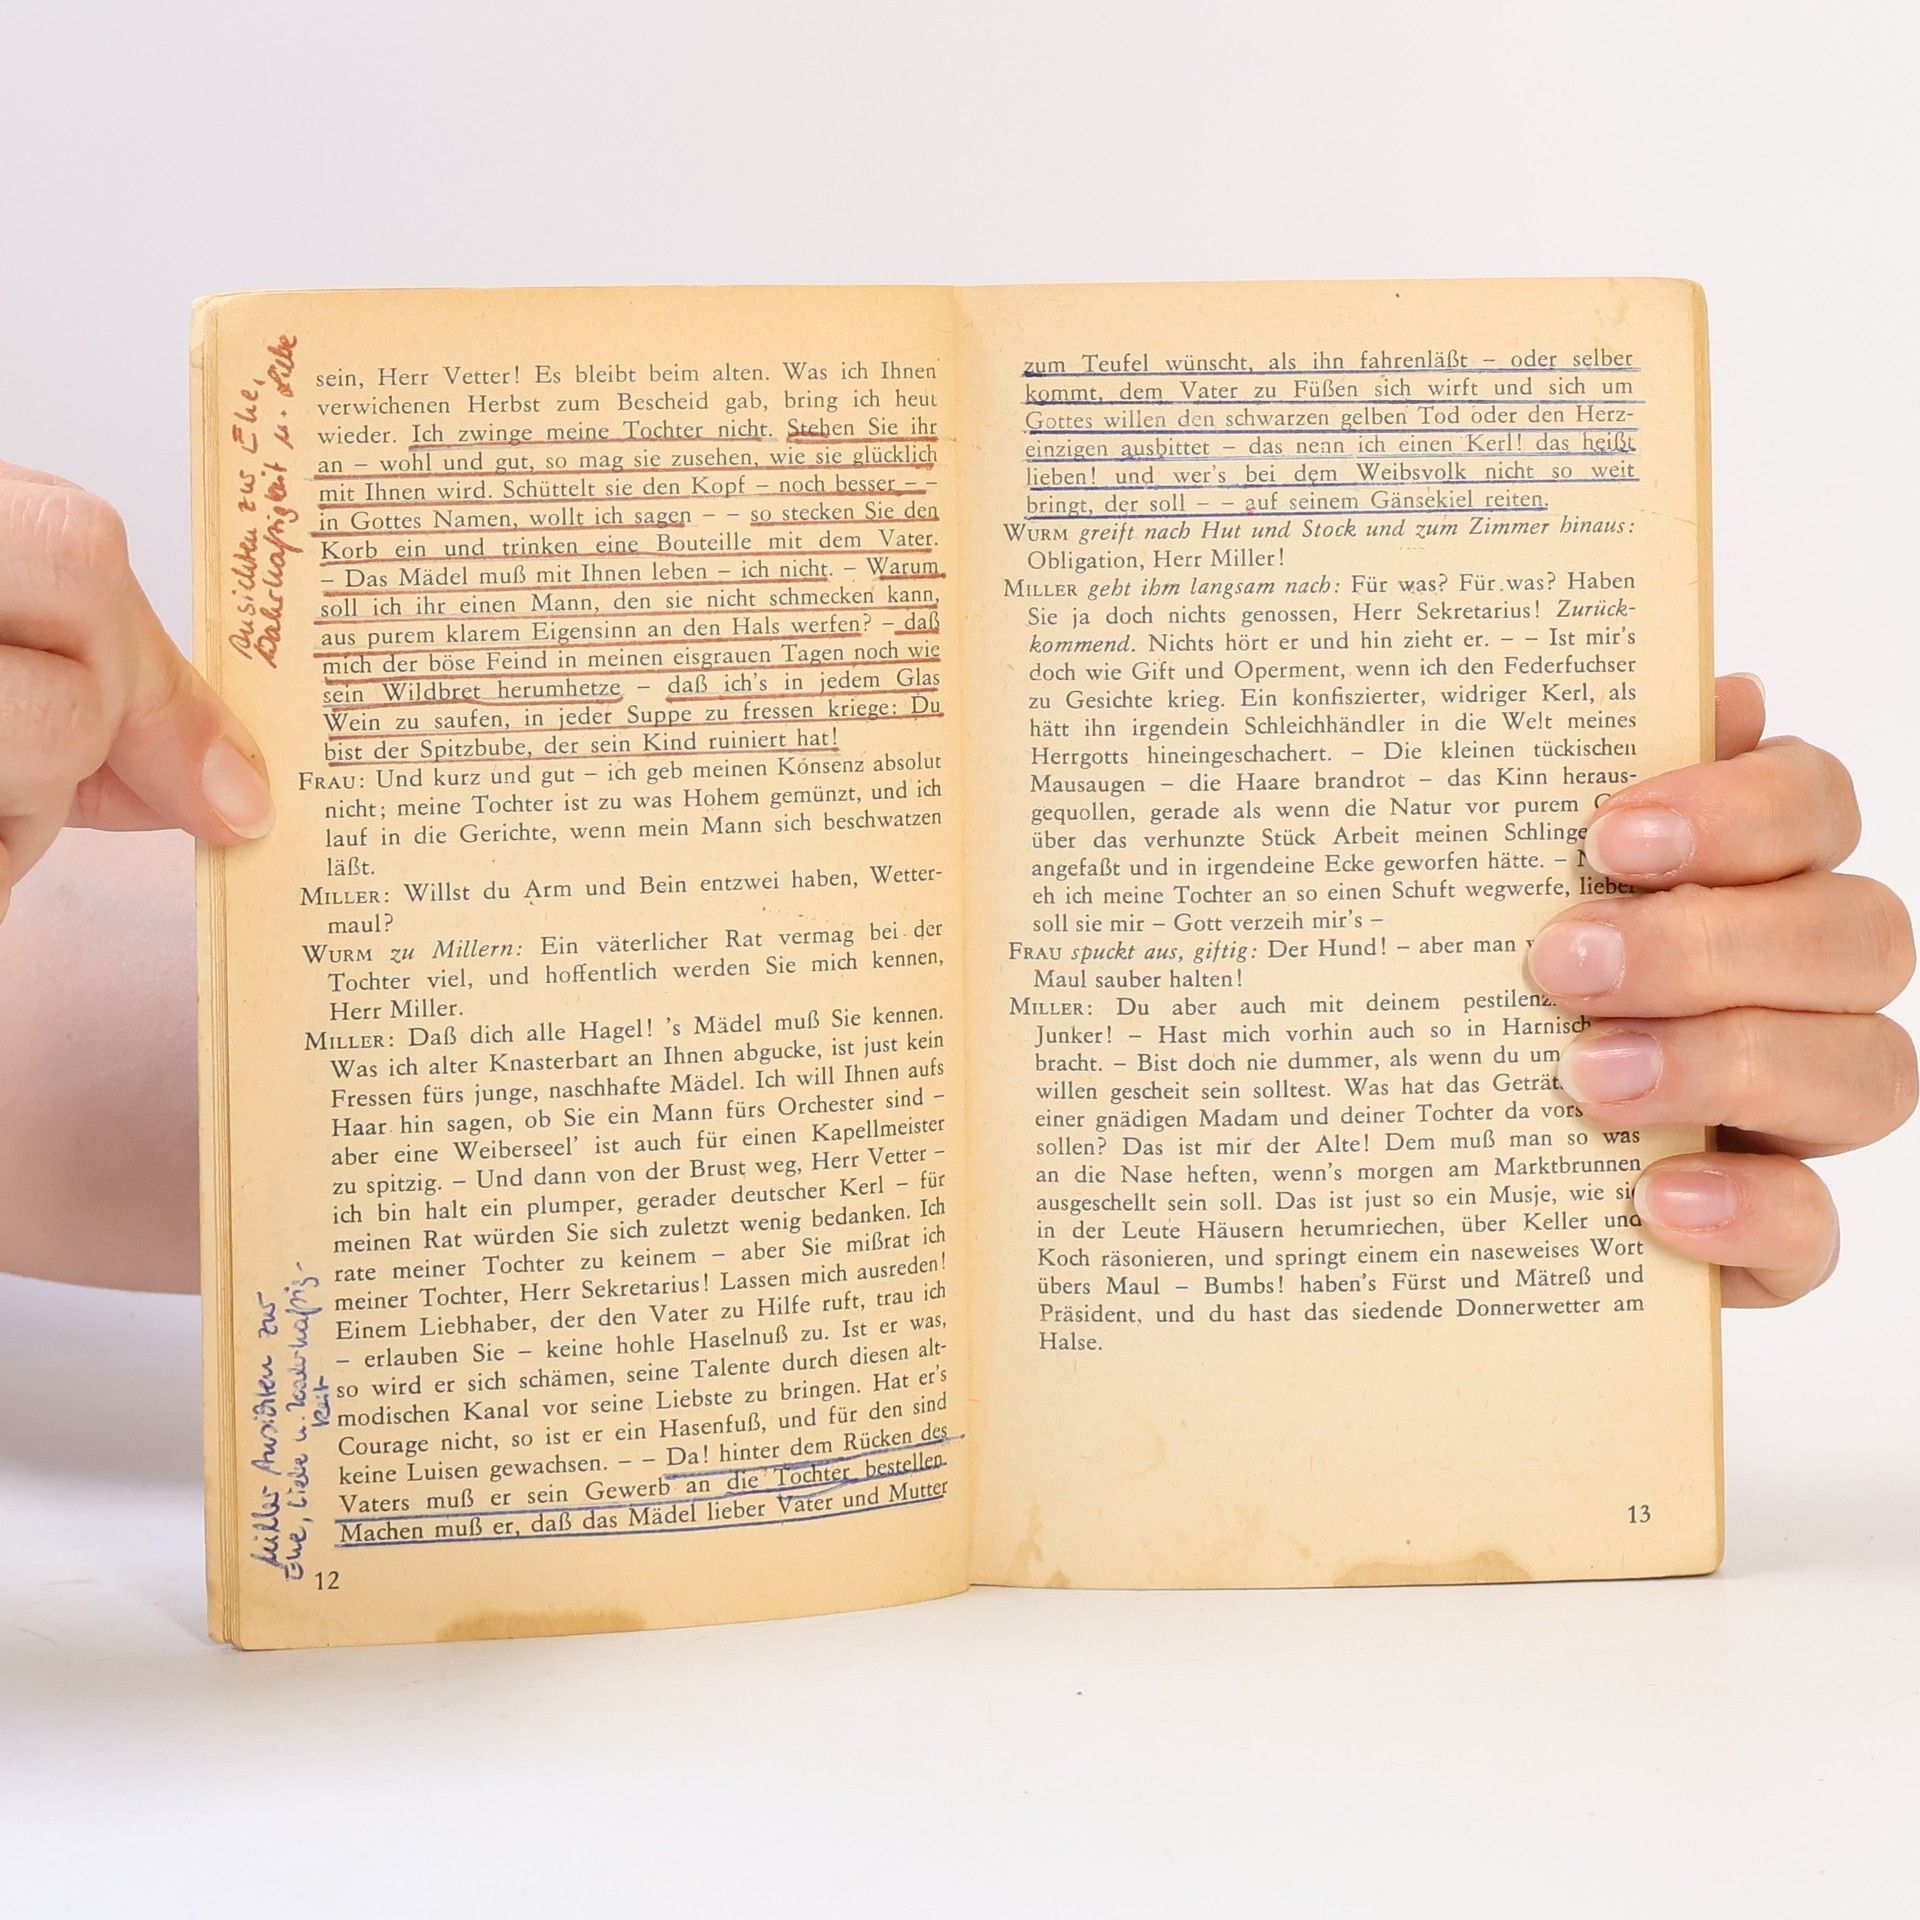 Ansichten zur Ehe,
Wahrhaftigkeit u. Liebe
sein, Herr Vetter! Es bleibt beim alten. Was ich Ihnen
verwichenen Herbst zum Bescheid gab, bring ich heut
wieder. Ich zwinge meine Tochter nicht. Stehen Sie ihr
an – wohl und gut, so mag sie zusehen, wie sie glücklich
mit Ihnen wird. Schüttelt sie den Kopf – noch besser – –
in Gottes Namen, wollt ich sagen – – so stecken Sie den
Korb ein und trinken eine Bouteille mit dem Vater.
– Das Mädel muß mit Ihnen leben – ich nicht. – Warum
soll ich ihr einen Mann, den sie nicht schmecken kann,
aus purem klarem Eigensinn an den Hals werfen? – daß
mich der böse Feind in meinen eisgrauen Tagen noch wie
sein Wildbret herumhetze – daß ich's in jedem Glas
Wein zu saufen, in jeder Suppe zu fressen kriege: Du
bist der Spitzbube, der sein Kind ruiniert hat!
FRAU: Und kurz und gut – ich geb meinen Konsenz absolut
nicht; meine Tochter ist zu was Hohem gemünzt, und ich
lauf in die Gerichte, wenn mein Mann sich beschwatzen
läßt.
MILLER: Willst du Arm und Bein entzwei haben, Wetter-
maul?
WURM zu Millern: Ein väterlicher Rat vermag bei der
Tochter viel, und hoffentlich werden Sie mich kennen,
Herr Miller.
MILLER: Daß dich alle Hagel! 's Mädel muß Sie kennen.
Was ich alter Knasterbart an Ihnen abgucke, ist just kein
Fressen fürs junge, naschhafte Mädel. Ich will Ihnen aufs
Haar hin sagen, ob Sie ein Mann fürs Orchester sind –
aber eine Weiberseel' ist auch für einen Kapellmeister
zu spitzig. – Und dann von der Brust weg, Herr Vetter –
ich bin halt ein plumper, gerader deutscher Kerl – für
meinen Rat würden Sie sich zuletzt wenig bedanken. Ich
rate meiner Tochter zu keinem – aber Sie mißrat ich
meiner Tochter, Herr Sekretarius! Lassen mich ausreden!
Einem Liebhaber, der den Vater zu Hilfe ruft, trau ich
– erlauben Sie – keine hohle Haselnuß zu. Ist er was,
so wird er sich schämen, seine Talente durch diesen alt-
modischen Kanal vor seine Liebste zu bringen. Hat er's
Courage nicht, so ist er ein Hasenfuß, und für den sind
keine Luisen gewachsen. – – Da! hinter dem Rücken des
Vaters muß er sein Gewerb an die Tochter bestellen.
Machen muß er, daß das Mädel lieber Vater und Mutter
Miller Ansichten zur
Ehe, Liebe u. Wahrhaftig-
keit
12
zum Teufel wünscht, als ihn fahrenläßt – oder selber
kommt, dem Vater zu Füßen sich wirft und sich um
Gottes willen den schwarzen gelben Tod oder den Herz-
einzigen ausbittet – das nenn ich einen Kerl! das heißt
lieben! und wer's bei dem Weibsvolk nicht so weit
bringt, der soll – – auf seinem Gänsekiel reiten.
WURM greift nach Hut und Stock und zum Zimmer hinaus:
Obligation, Herr Miller!
MILLER geht ihm langsam nach: Für was? Für was? Haben
Sie ja doch nichts genossen, Herr Sekretarius! Zurück-
kommend. Nichts hört er und hin zieht er. – – Ist mir's
doch wie Gift und Operment, wenn ich den Federfuchser
zu Gesichte krieg. Ein konfiszierter, widriger Kerl, als
hätt ihn irgendein Schleichhändler in die Welt meines
Herrgotts hineingeschachert. – Die kleinen tückischen
Mausaugen – die Haare brandrot – das Kinn heraus-
gequollen, gerade als wenn die Natur vor purem
über das verhunzte Stück Arbeit meinen
angefaßt und in irgendeine Ecke geworfen hätte. –
eh ich meine Tochter an so einen Schuft wegwerfe, lieber
soll sie mir – Gott verzeih mir's –
FRAU spuckt aus, giftig: Der Hund! – aber man
Maul sauber halten!
MILLER: Du aber auch mit deinem
Junker! – Hast mich vorhin auch so in Harnisch
bracht. – Bist doch nie dummer, als wenn du um
willen gescheit sein solltest. Was hat das
einer gnädigen Madam und deiner Tochter da
sollen? Das ist mir der Alte! Dem muß man so was
an die Nase heften, wenn's morgen am Marktbrunnen
ausgeschellt sein soll. Das ist just so ein Musje, wie sie
in der Leute Häusern herumriechen, über Keller und
Koch räsonieren, und springt einem ein naseweises Wort
übers Maul – Bumbs! haben's Fürst und Mätreß und
Präsident, und du hast das siedende Donnerwetter am
Halse.
13